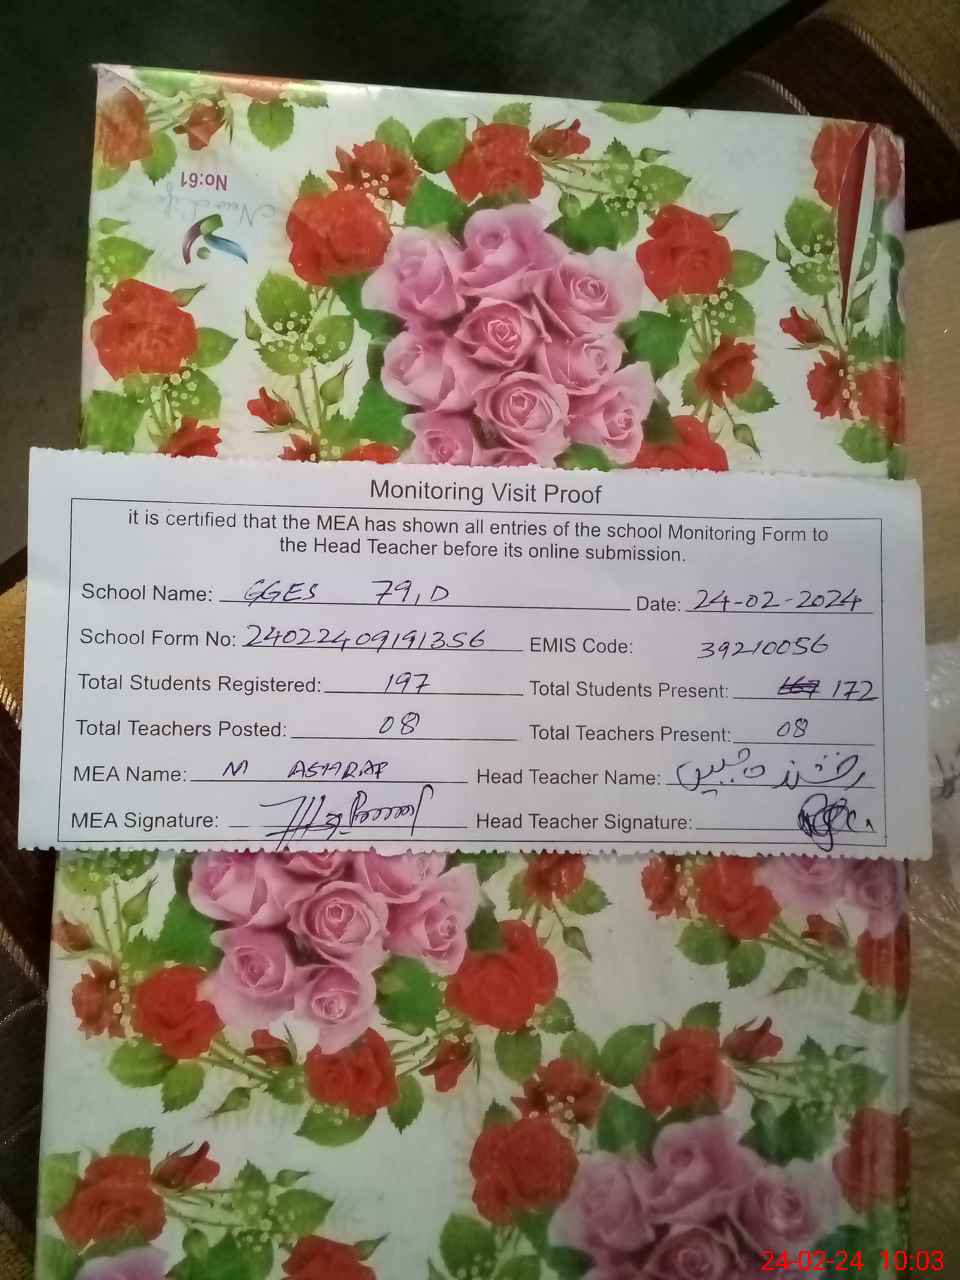 No:61
New Life
Monitoring Visit Proof
it is certified that the MEA has shown all entries of the school Monitoring Form to
the Head Teacher before its online submission.
School Name: GGES 79, D Date: 24-02-2024
School Form No: 24022409191356 EMIS Code: 39210056
Total Students Registered: 197 Total Students Present: 172
Total Teachers Posted: 08 Total Teachers Present: 08
MEA Name: M ASHRAF Head Teacher Name: رخشندہ جبیں
MEA Signature: Head Teacher Signature:
24-02-24 10:03